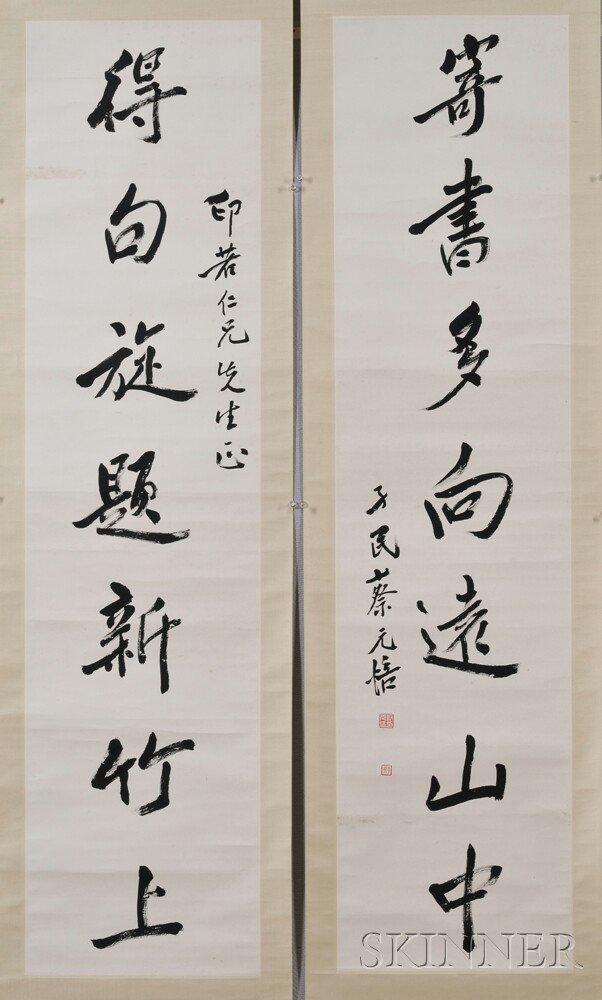 寄書多向遠山中
子民蔡元培
印若仁兄先生正
得句旋題新竹上
SKINNER